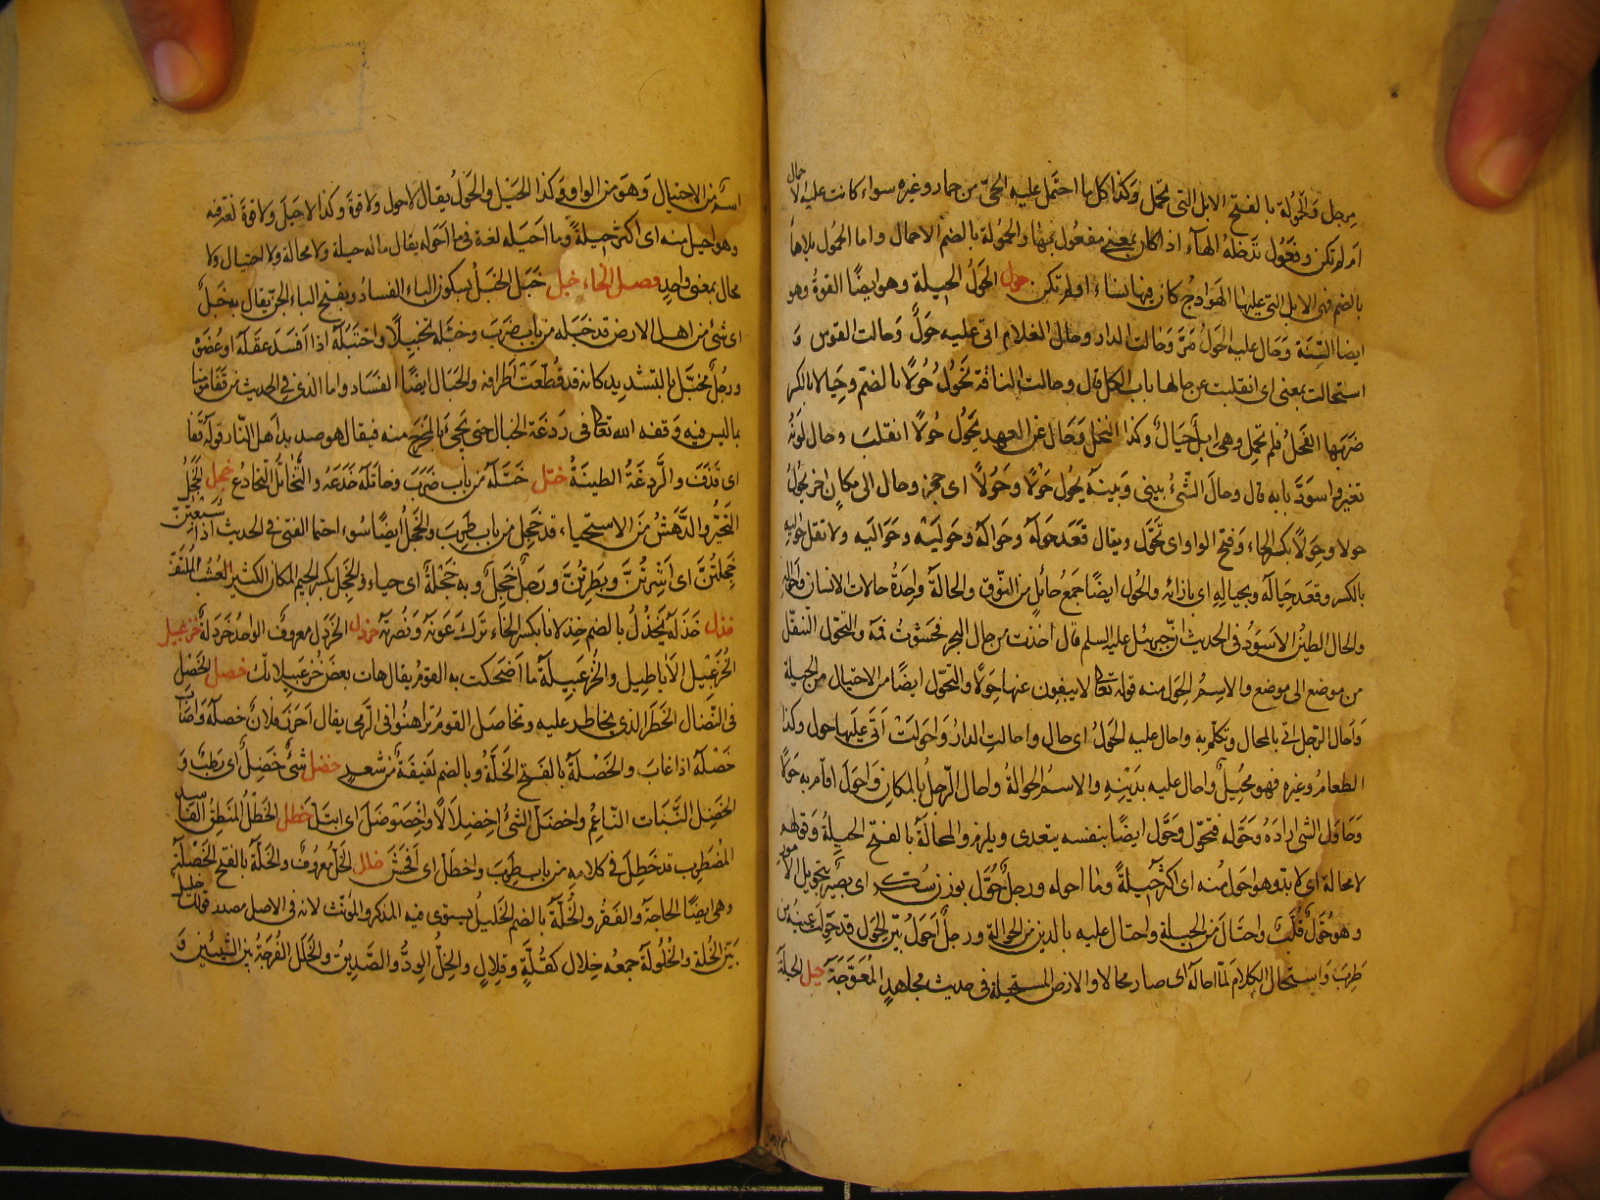 مرجل والحمولة بالفتح الابل التى تحمل وكذا كل ما احتمل عليه الحى من حمار وغيره سواء كانت عليه الاحمال
ام لم تكن وفعول تدخله الهاء اذا كان بمعنى مفعول بها والحمولة بالضم الاحمال واما الحمول بلا هاء
بالضم فهى الابل التى عليها الهوادج كان فيها نساء او لم تكن حول الحول الحيلة وهو ايضا القوة وهو
ايضا السنة وحال عليه الحول مر وحالت الدار وحال الغلام اتى عليه حول وحالت القوس و
استحالت بمعنى اى انقلبت عن حالها باب الكل قال وحالت الناقة تحول حولا بالضم وحيالا بالكسر
ضربها الفحل فلم تحمل وهى ابل حيال وكذا النخل وحال عن العهد يحول حولا انقلب وحال لونه
تغير واسود بابه قال وحال الشئ بينى وبينه يحول حولا وحولا اى حجز وحال الى مكان اخر يحول
حولا وحولا بكسر الحاء وفتح الواو اى تحول ويقال قعد حوله وحواله وحوليه وحواليه ولا تقل حواليه
بالكسر وقعد حياله وبحياله اى بازائه والحول ايضا جمع حائل من النوق والحالة واحدة حالات الانسان واحواله
والحال الطين الاسود وفى الحديث ان جبريل عليه السلم قال اخذت من حال البحر فحشوت فمه والتحول التنقل
من موضع الى موضع والاسم الحول منه قوله تعالى لا يبغون عنها حولا والتحول ايضا من الاحتيال من الحيلة
واحال الرجل اتى بالمحال وتكلم به واحال عليه الحول اى حال واحالت الدار واحولت اتى عليها حول وكذا
الطعام وغيره فهو محيل واحال عليه بدينه والاسم الحوالة واحال الرجل بالمكان واحول اقام به حولا
وحاول الشئ اراده وحوله فتحول وحول ايضا بنفسه يتعدى ويلزم والمحالة بالفتح الحيلة وقولهم
لا محالة اى لا بد وهو احول منه اى اكثر حيلة وما احوله ورجل حول بوزن سكر اى بصير بتحويل الامور
وهو حول قلب واحتال من الحيلة واحتال عليه بالدين من الحوالة ورجل احول بين الحول وقد حولت عينه من
طرب واستحال الكلام لما احاله اى صار محالا والارض المستحيلة فى حديث مجاهد المعوجة حيل الحيلة
اسم من الاحتيال وهو من الواو وكذا الحيل والحول يقال لا حول ولا قوة وكذا لا حيل ولا قوة لغة فيه
وهو احيل منه اى اكثر حيلة وما احيله لغة فى ما احوله يقال ماله حيلة ولا محالة ولا احتيال ولا
محال بمعنى واحد فصل الخاء خبل خبل الخبل بسكون الباء الفساد وبفتح الباء الجن يقال به خبل
اى شئ من اهل الارض قد خبله من باب ضرب وخبله تخبيلا واختبله اذا افسد عقله او عضوه
ورجل مخبل بالتشديد كانه قد قطعت اطرافه والخبال ايضا الفساد واما الذى فى الحديث من قفا مؤمنا
بما ليس فيه وقفه الله تعالى فى ردغة الخبال حتى يجئ بالمخرج منه فيقال هو صديد اهل النار قوله قفا
اى قذف والردغة الطينة ختل ختله من باب ضرب وخاتله خدعه والتخاتل التخادع خجل الخجل
التحير والدهش من الاستحياء وقد خجل من باب طرب والخجل ايضا سوء احتمال الغنى فى الحديث اذا شبعتن
خجلتن اى اشرتن وبطرتن ورجل خجل وبه خجلة اى حياء والخجل بكسر الجيم المكان الكثير العشب الملتف
خذل خذله يخذل بالضم خذلانا بكسر الخاء ترك عونه ونصرته خردل الخردل معروف الواحد خردلة خزعبيل
الخزعبيل الاباطيل والخزعبيلة ما اضحكت به القوم يقال هات بعض خزعبيلاتك خصل الخصل
فى النضال الخطر الذى يخاطر عليه وتخاصل القوم تراهنوا فى الرمى يقال احرز فلان خصله واصاب
خصله اذا غاب والخصلة بالفتح الخلة وبالضم لفيفة من شعر خضل شئ خضل اى رطب و
الخضل النبات الناعم واخضل الشئ اخضلالا واخضوضل اى ابتل خطل الخطل المنطق الفاسد
المضطرب قد خطل فى كلامه من باب طرب واخطل اى افحش خلل الخل معروف والخلة بالفتح الخصلة
وهى ايضا الحاجة والفقر والخلة بالضم الخليل يستوى فيه المذكر والمؤنث لانه فى الاصل مصدر قولك خليل
بين الخلة والخلولة جمعه خلال كقلة وقلال والخل الود والصديق والخلل الفرجة بين الشيئين و